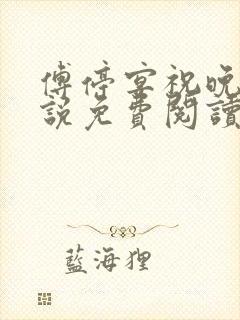 傅停宴祝晚
說免費閱讀
藍海狸